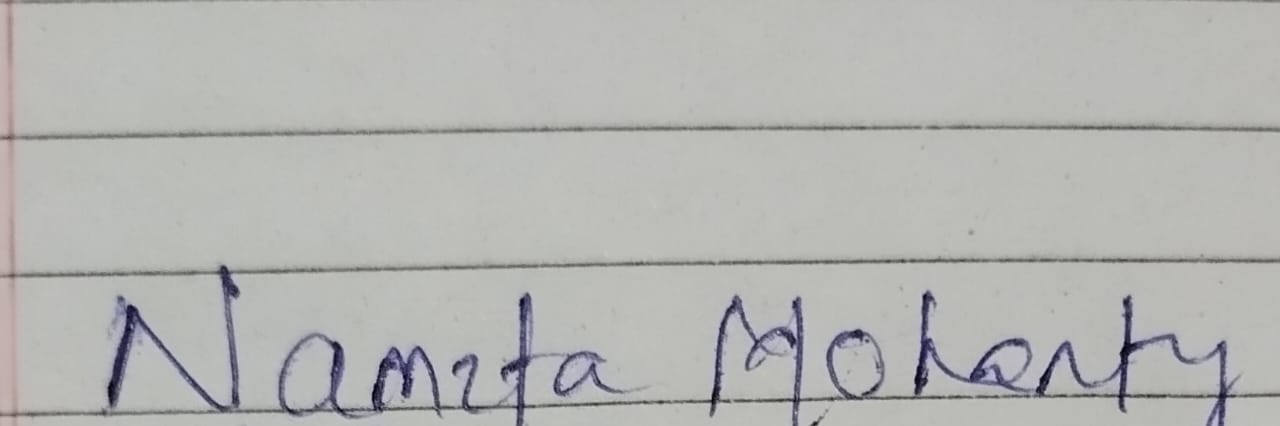 Namita Mohanty